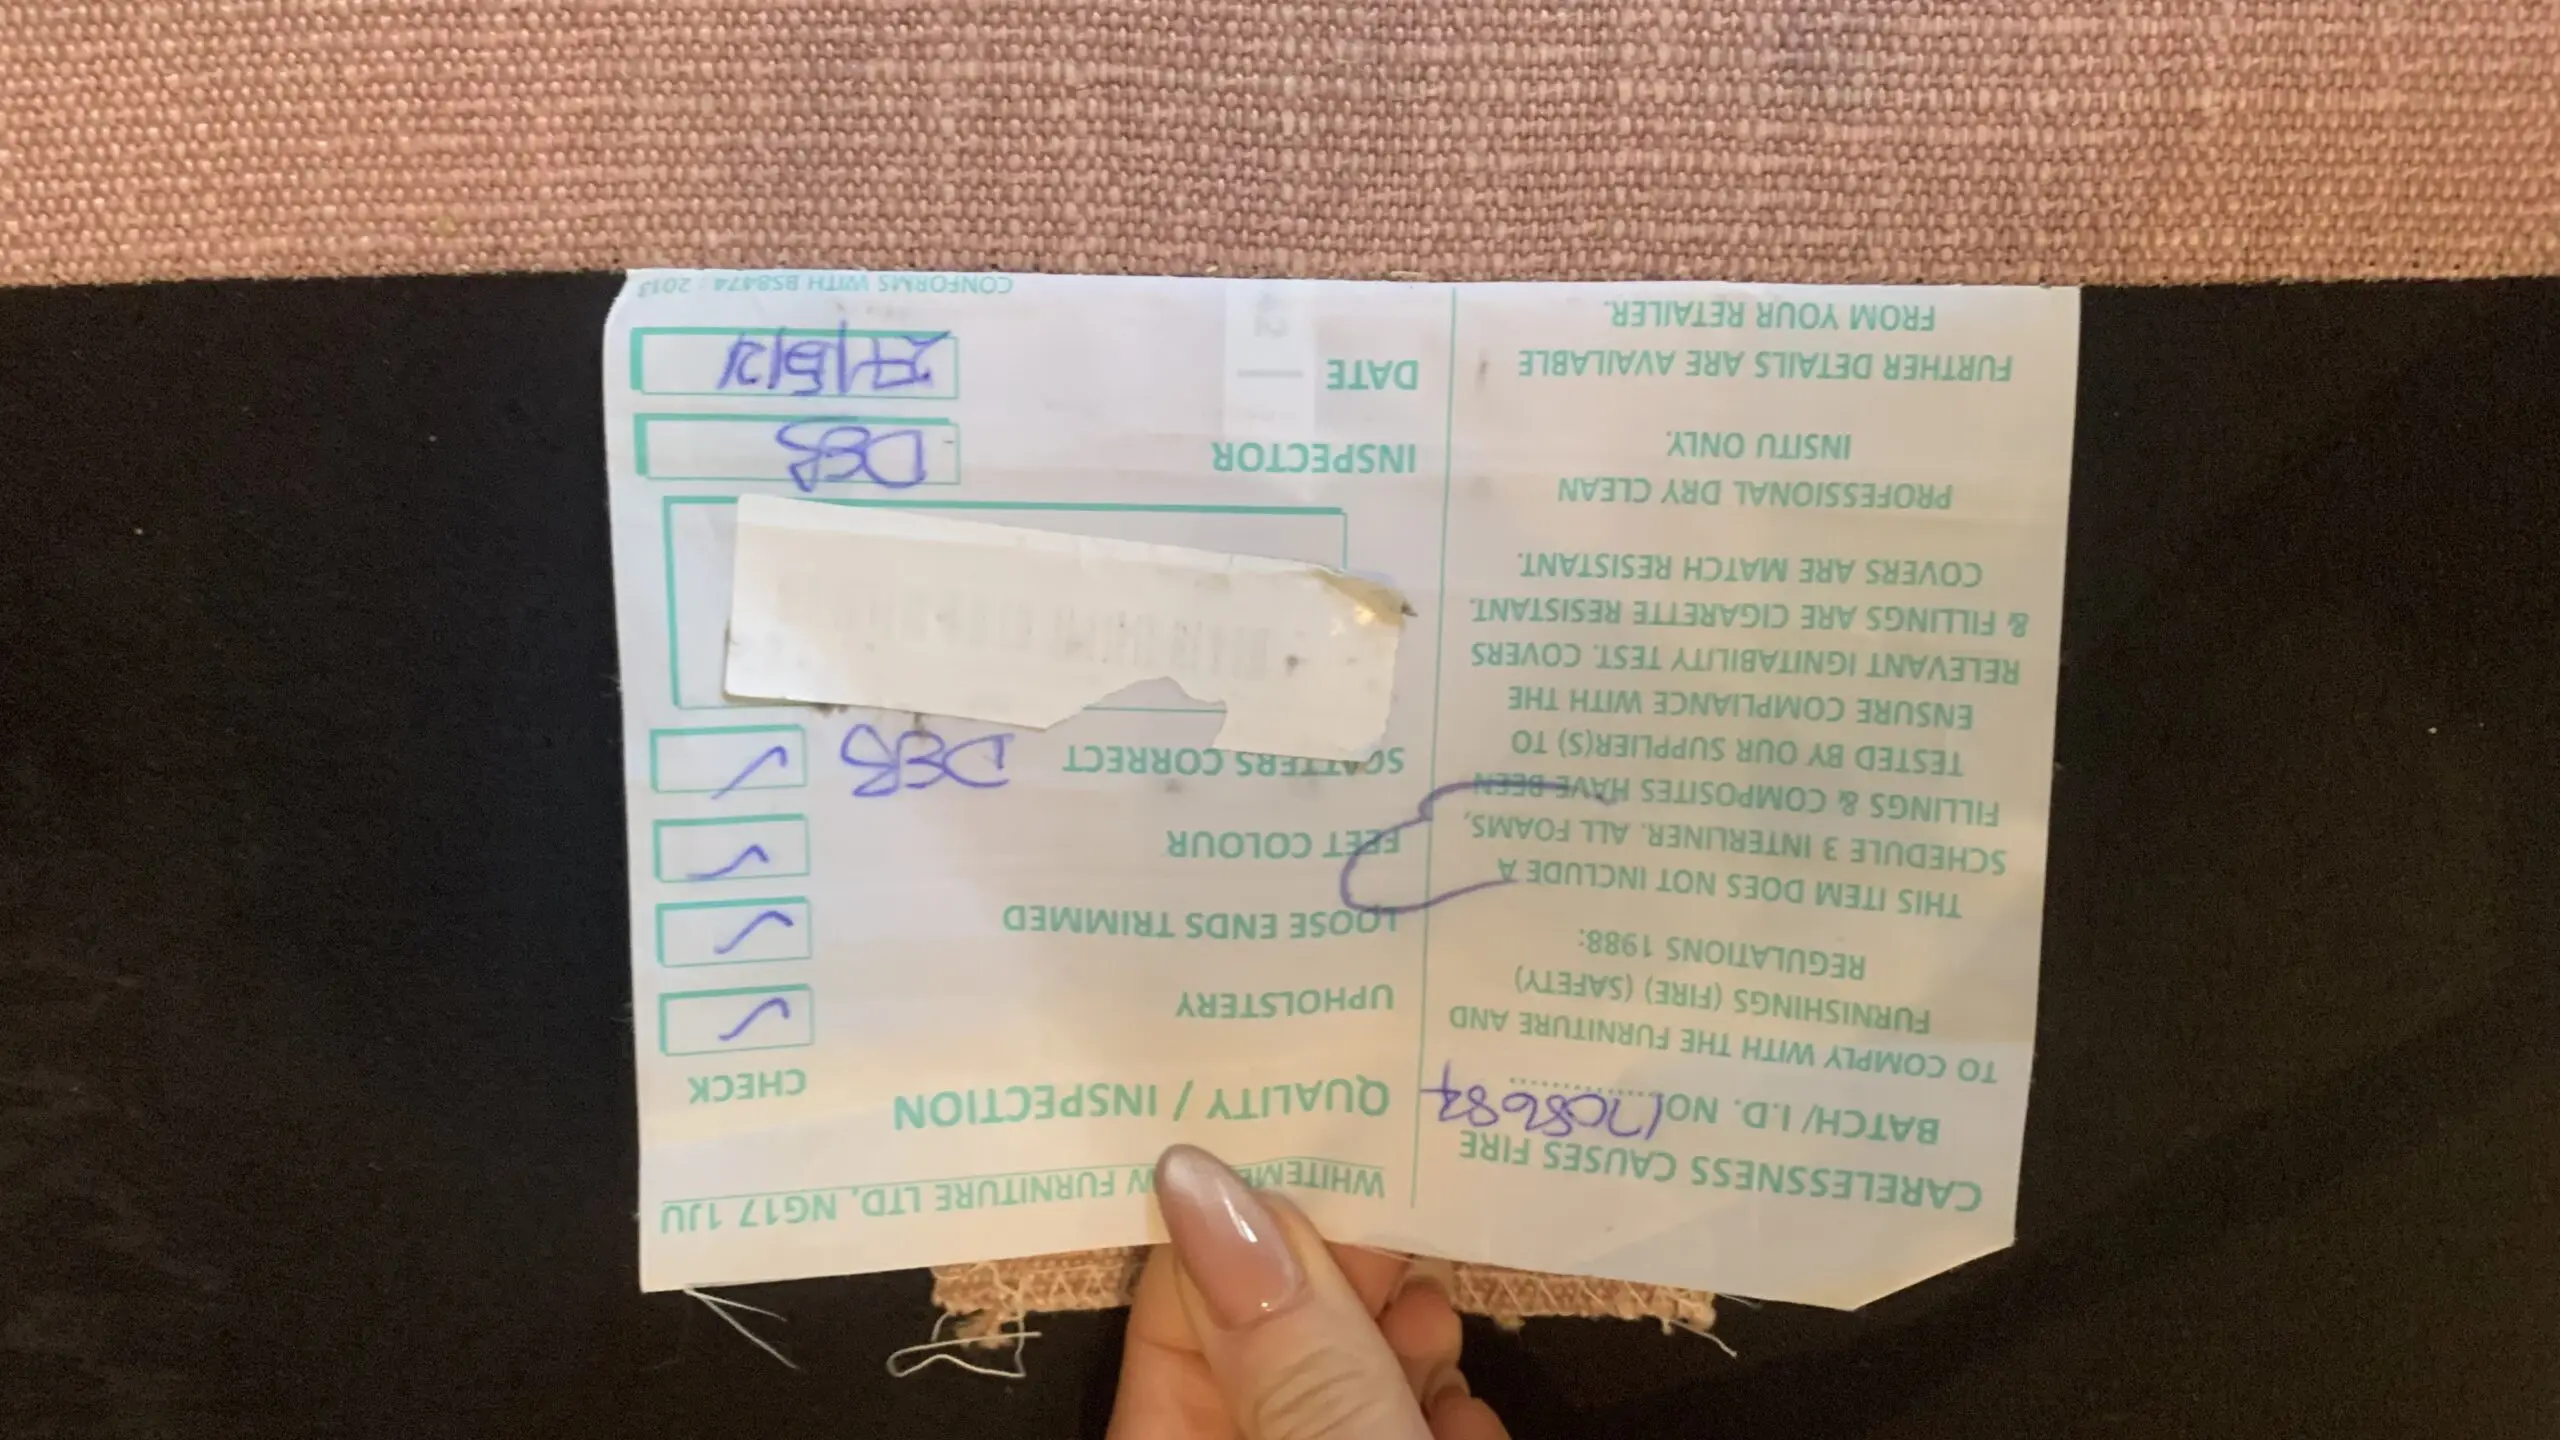 CARELESSNESS CAUSES FIRE
BATCH/ I.D. NO.
TO COMPLY WITH THE FURNITURE AND
FURNISHINGS (FIRE) (SAFETY)
REGULATIONS 1988:
THIS ITEM DOES NOT INCLUDE A
SCHEDULE 3 INTERLINER. ALL FOAMS,
FILLINGS & COMPOSITES HAVE BEEN
TESTED BY OUR SUPPLIER(S) TO
ENSURE COMPLIANCE WITH THE
RELEVANT IGNITABILITY TEST. COVERS
& FILLINGS ARE CIGARETTE RESISTANT.
COVERS ARE MATCH RESISTANT.
PROFESSIONAL DRY CLEAN
INSITU ONLY.
FURTHER DETAILS ARE AVAILABLE
FROM YOUR RETAILER.
FURNITURE LTD, NG17 1JU
QUALITY / INSPECTION
CHECK
UPHOLSTERY
LOOSE ENDS TRIMMED
FEET COLOUR
SCATTERS CORRECT DEB
INSPECTOR DEB
DATE 27/5/21
CONFORMS WITH BS8474 : 2013